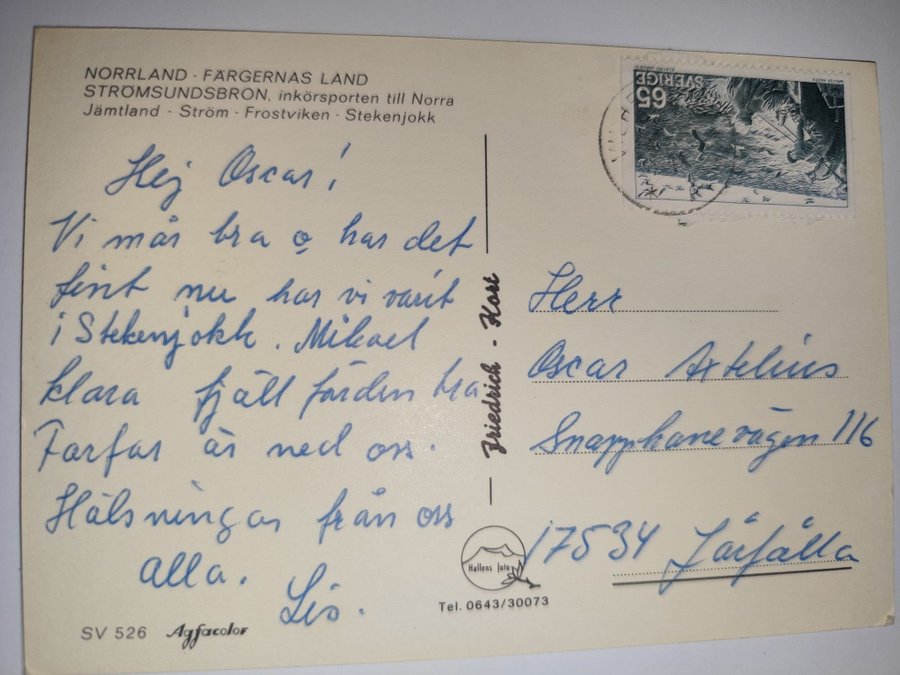 NORRLAND - FÄRGERNAS LAND
STRÖMSUNDSBRON, inkörsporten till Norra
Jämtland - Ström - Frostviken - Stekenjokk
Hej Oscar!
Vi mår bra o har det
fint nu har vi varit
i Stekenjokk. Mikael
klara fjäll färden bra
Farfar är ned oss.
Hälsningar från oss
alla.
Lis.
SV 526 Agfacolor
Friedrich - Kort
Hallens foto
Tel. 0643/30073
SVERIGE
65
Herr
Oscar Axtelius
Snapphanevägen 116
17534 Järfälla